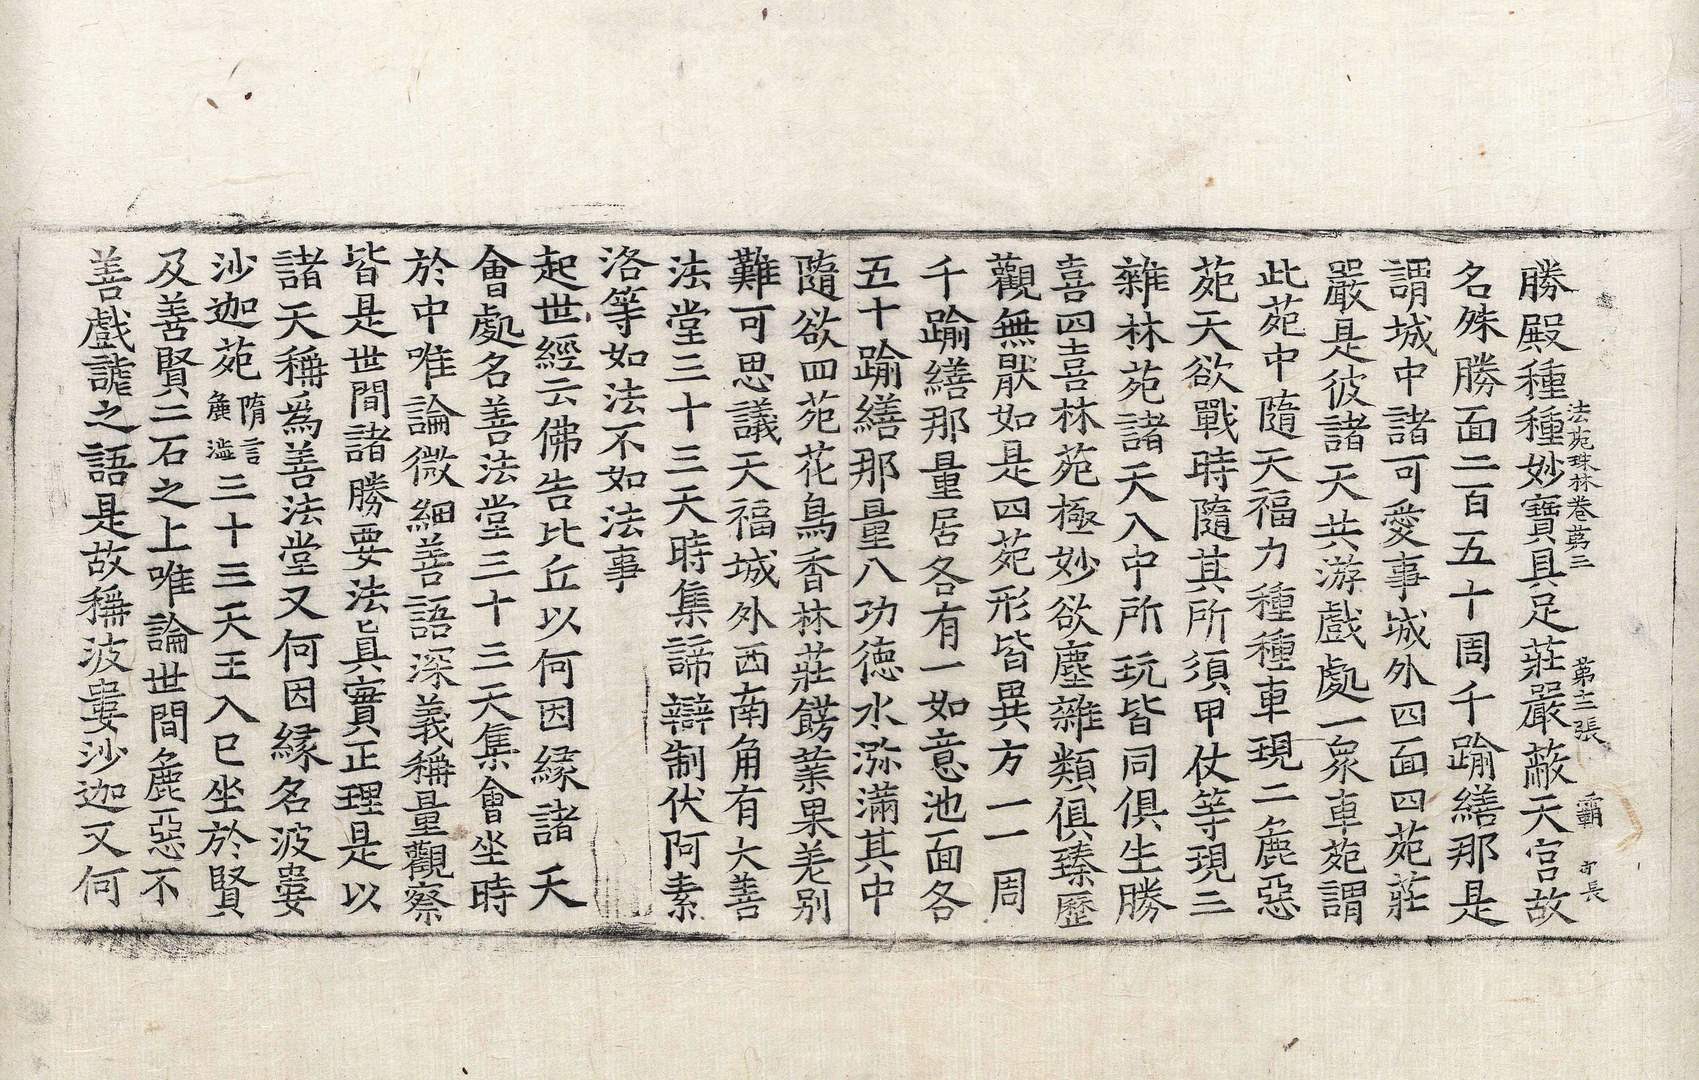 法苑珠林卷苐三　苐十三張　霸
勝殿種種妙寶具足莊嚴蔽天宮故
名殊勝面二百五十周千踰繕那是
謂城中諸可愛事城外四面四苑莊
嚴是彼諸天共游戲處一衆車苑謂
此苑中隨天福力種種車現二麁惡
苑天欲戰時隨其所須甲仗等現三
雜林苑諸天入中所玩皆同俱生勝
喜四喜林苑極妙欲塵雜類俱臻歷
觀無猒如是四苑形皆異方一一周
千踰繕那量居各有一如意池面各
五十踰繕那量八功德水弥滿其中
隨欲四苑花鳥香林莊餝業果差別
難可思議天福城外西南角有大善
法堂三十三天時集諦辯制伏阿素
洛等如法不如法事
起世經云佛告比丘以何因緣諸天
會處名善法堂三十三天集會坐時
於中唯論微細善語深義稱量觀察
皆是世間諸勝要法真實正理是以
諸天稱爲善法堂又何因緣名波婁
沙迦苑隋言麁澁三十三天王入已坐於賢
及善賢二石之上唯論世間麁惡不
善戲謔之語是故稱波婁沙迦又何